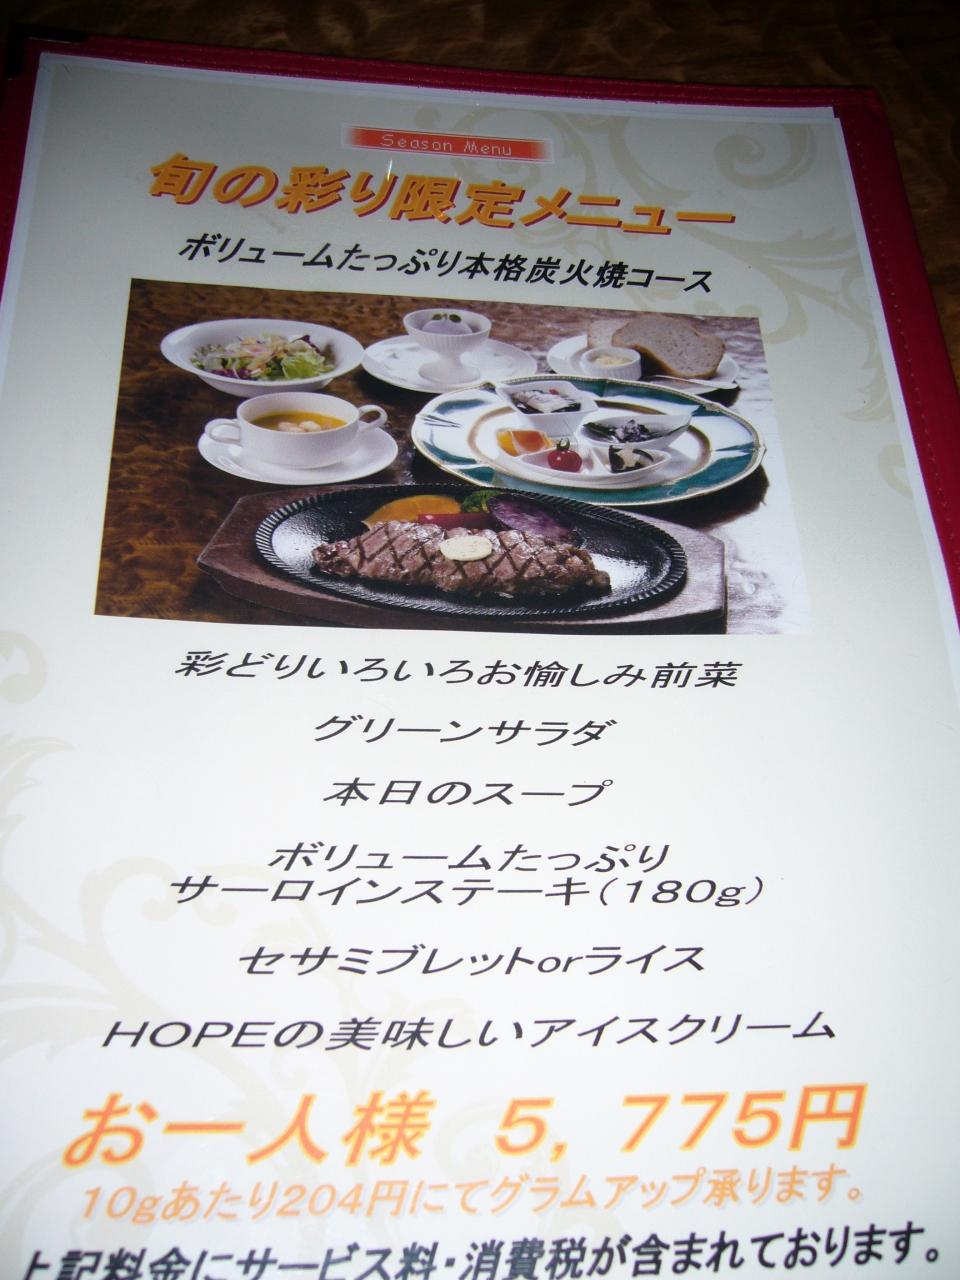 Season Menu
旬の彩り限定メニュー
ボリュームたっぷり本格炭火焼コース
彩どりいろいろお愉しみ前菜
グリーンサラダ
本日のスープ
ボリュームたっぷり
サーロインステーキ（180g）
セサミブレットorライス
HOPEの美味しいアイスクリーム
お一人様 5,775円
10gあたり204円にてグラムアップ承ります。
上記料金にサービス料・消費税が含まれております。